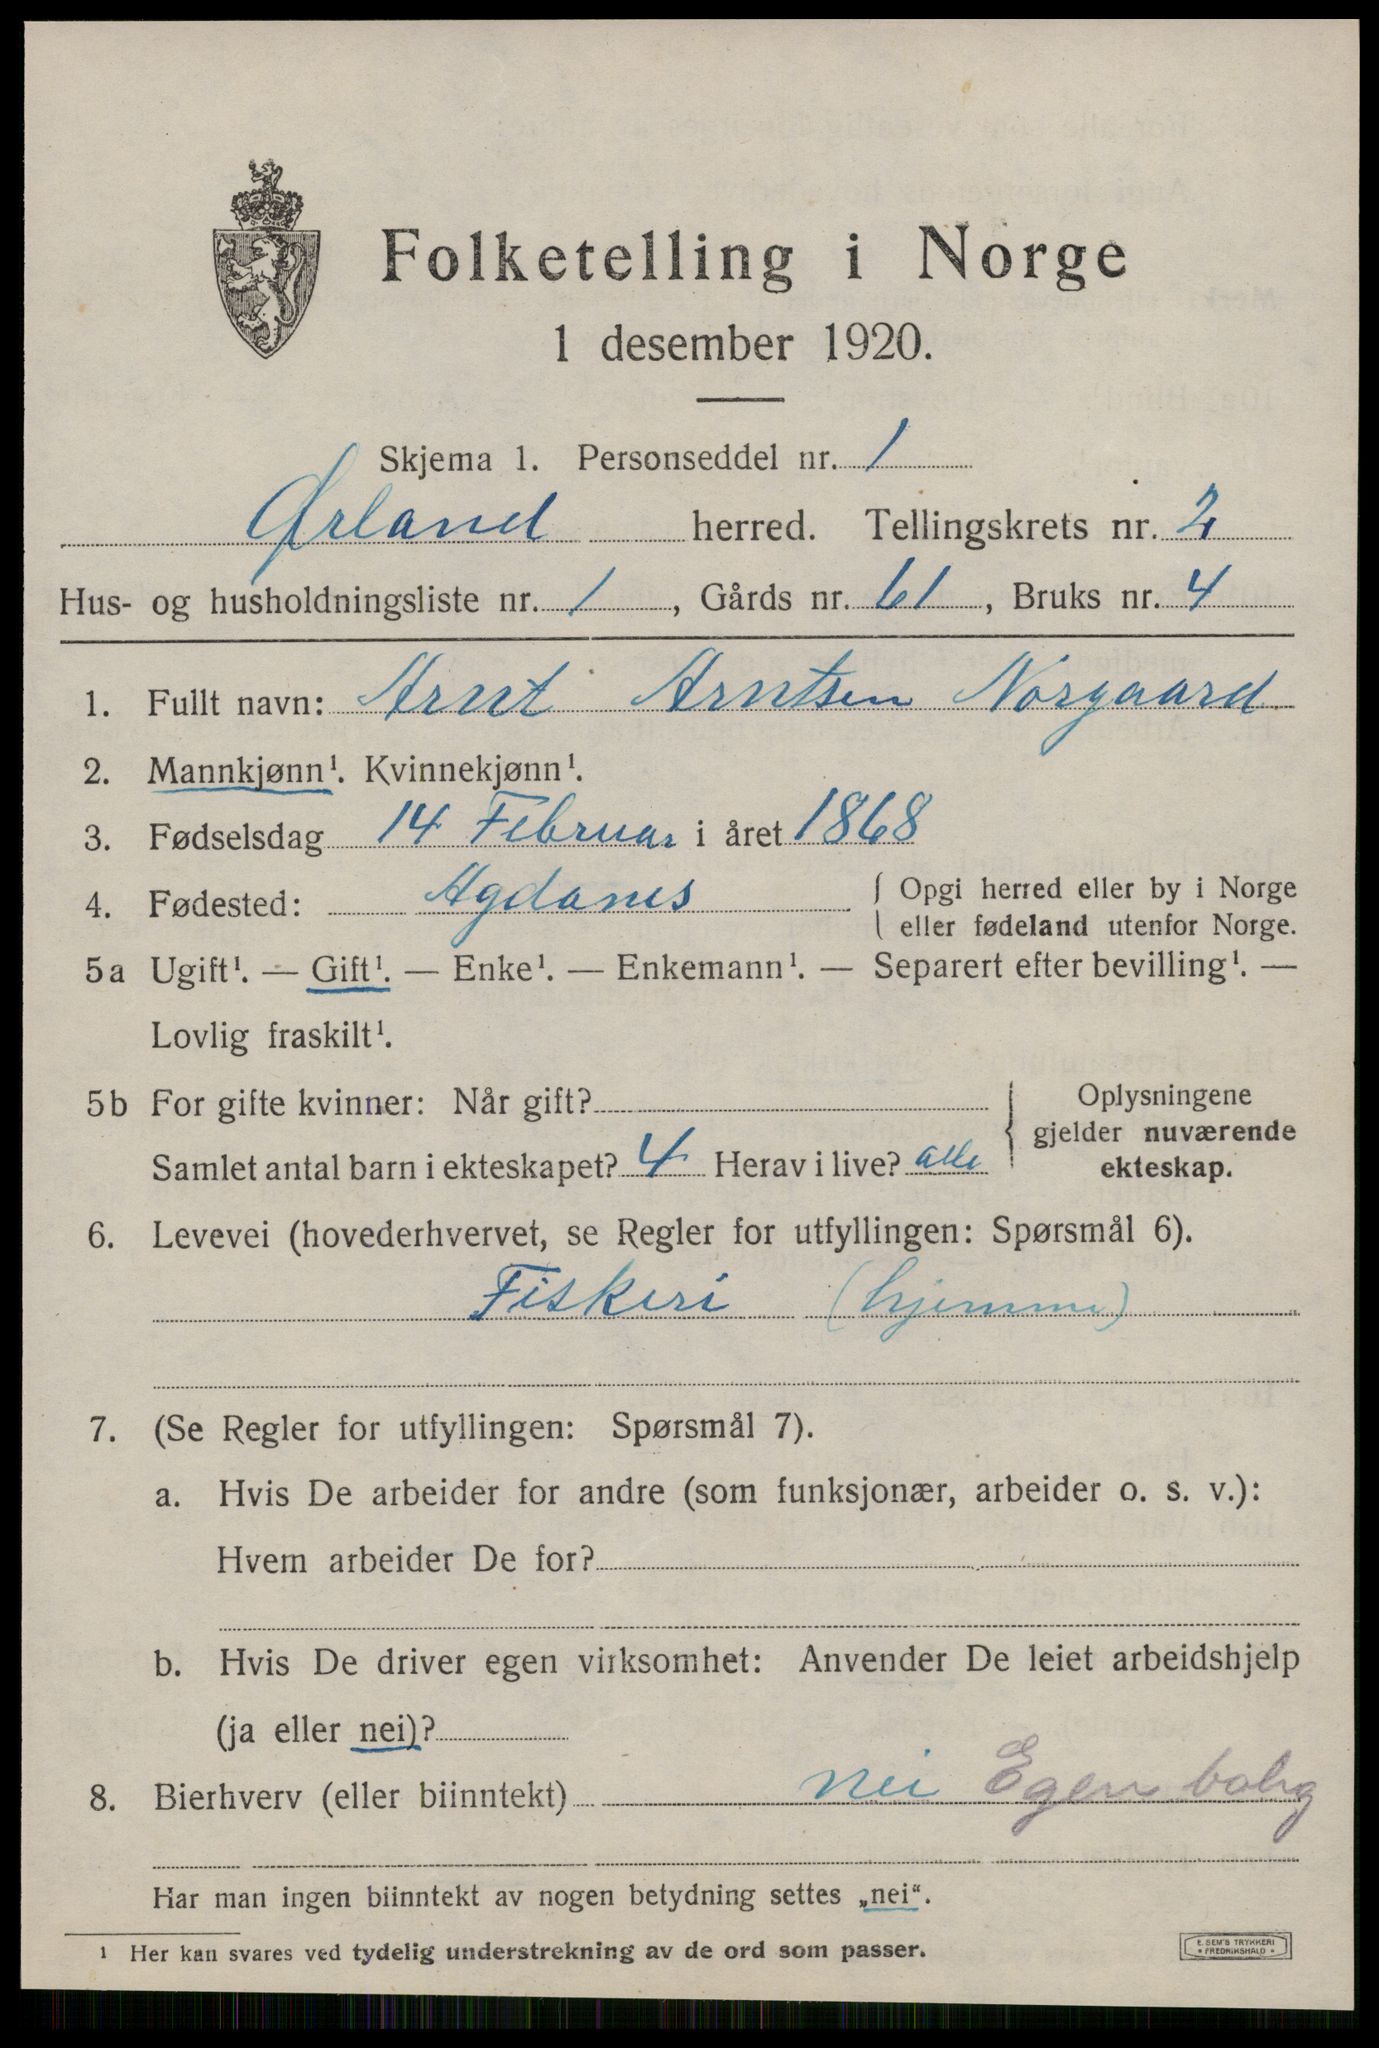 Folketelling i Norge
1 desember 1920.
Skjema 1. Personseddel nr. 1
Ørland herred. Tellingskrets nr. 2
Hus- og husholdningsliste nr. 1, Gårds nr. 61, Bruks nr. 4
1. Fullt navn: Arnt Arntsen Norgaard
2. Mannkjønn¹. Kvinnekjønn¹.
3. Fødselsdag 14 Februar i året 1868
4. Fødested: Agdanes { Opgi herred eller by i Norge
eller fødeland utenfor Norge.
5a Ugift¹. — Gift¹. — Enke¹. — Enkemann¹. — Separert efter bevilling¹. —
Lovlig fraskilt¹.
5b For gifte kvinner: Når gift? } Oplysningene
gjelder nuværende
Samlet antal barn i ekteskapet? 4 Herav i live? alle ekteskap.
6. Levevei (hovederhvervet, se Regler for utfyllingen: Spørsmål 6).
Fiskeri (hjemme)
7. (Se Regler for utfyllingen: Spørsmål 7).
a. Hvis De arbeider for andre (som funksjonær, arbeider o. s. v.):
Hvem arbeider De for?
b. Hvis De driver egen virksomhet: Anvender De leiet arbeidshjelp
(ja eller nei)?
8. Bierhverv (eller biinntekt) nei Egen bolig
Har man ingen biinntekt av nogen betydning settes „nei“.
¹ Her kan svares ved tydelig understrekning av de ord som passer.
E. SEM'S TRYKKERI
• FREDRIKSHALD •